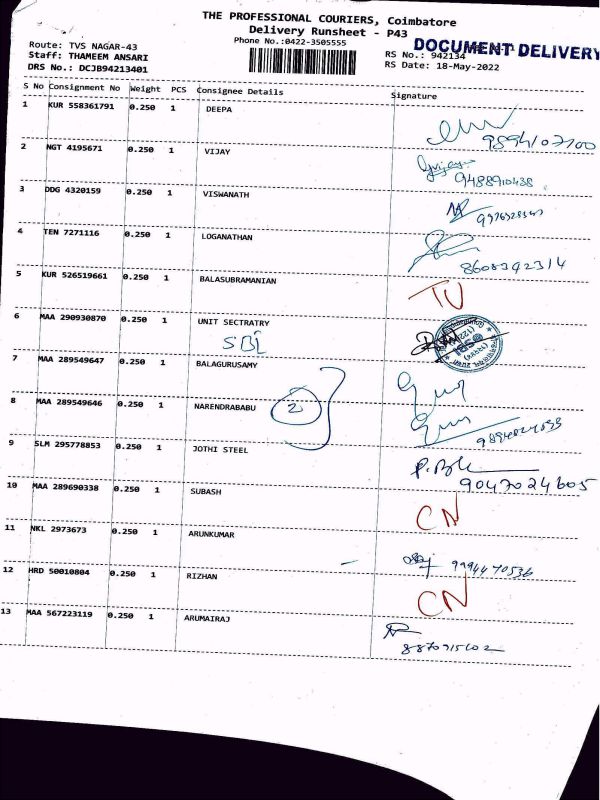 THE PROFESSIONAL COURIERS, Coimbatore
Delivery Runsheet - P43
Phone No.:0422-3505555
DOCUMENT DELIVERY
Route: TVS NAGAR-43
Staff: THAMEEM ANSARI
DRS No.: DCJB94213401
RS No.: 942134
RS Date: 18-May-2022
S No Consignment No Weight PCS Consignee Details Signature
1 KUR 558361791 0.250 1 DEEPA
9894107700
2 NGT 4195671 0.250 1 VIJAY
9488910438
3 DDG 4320159 0.250 1 VISWANATH
4 TEN 7271116 0.250 1 LOGANATHAN
8608392314
5 KUR 526519661 0.250 1 BALASUBRAMANIAN
TU
6 MAA 290930870 0.250 1 UNIT SECTRATRY
SBI
7 MAA 289549647 0.250 1 BALAGURUSAMY
8 MAA 289549646 0.250 1 NARENDRABABU 2
9 SLM 295778853 0.250 1 JOTHI STEEL
9047024605
10 MAA 289690338 0.250 1 SUBASH
CN
11 NKL 2973673 0.250 1 ARUNKUMAR
9994470536
12 HRD 50010804 0.250 1 RIZHAN
CN
13 MAA 567223119 0.250 1 ARUMAIRAJ
8870915602